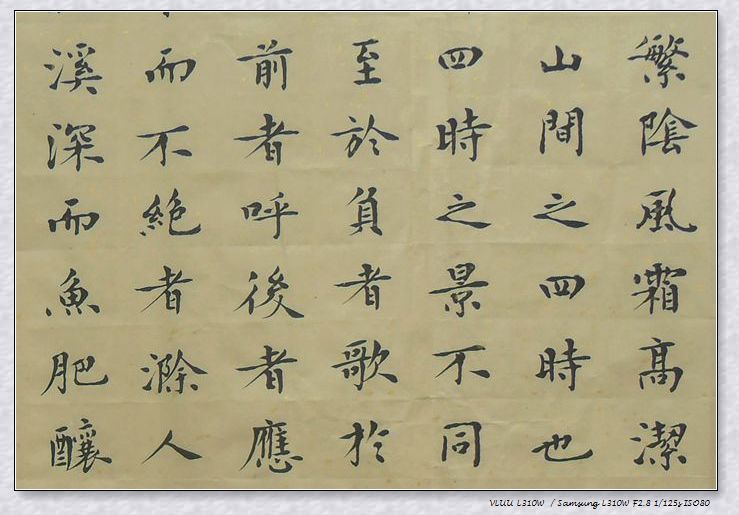 繁陰風霜高潔
山間之四時也
四時之景不同
至於負者歌於
前者呼後者應
而不絶者滁人
溪深而魚肥釀
VLUU L310W / Samsung L310W F2.8 1/125s ISO80